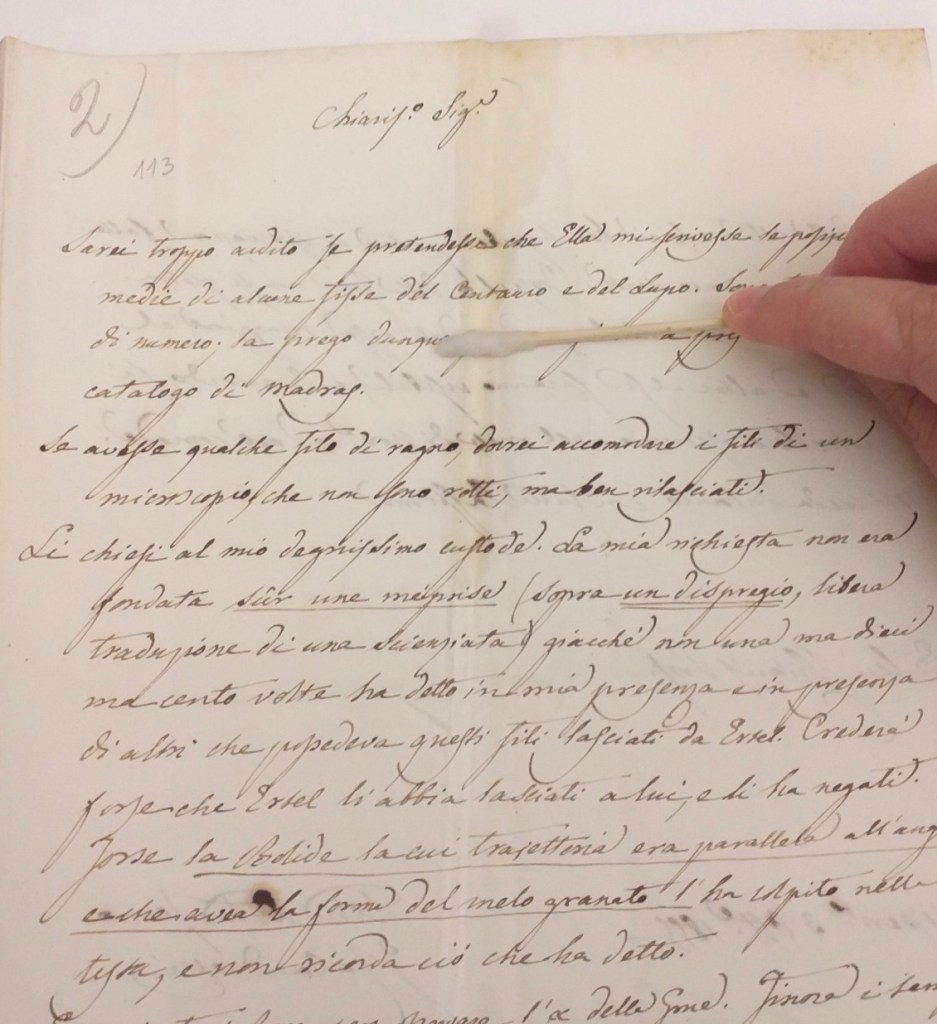 2)
113
Chiariſ.º Sig.r
Sarei troppo ardito se pretendesse che Ella mi scrivesse le posiz
medie di alcune fisse del Centauro e del Lupo. Sono
di numero; la prego dunque
catalogo di Madras.
Se avesse qualche filo di ragno, dovrei accomodare i fili di un
microscopio, che non sono rotti, ma ben rilasciati.
Li chiesi al mio degnissimo custode. La mia richiesta non era
fondata sûr une meprise (sopra un dispregio, libera
traduzione di una scienziata) giacché non una ma dieci
ma cento volte ha detto in mia presenza e in presenza
di altri che possedeva questi fili lasciati da Ertel. Crederà
forse che Ertel li abbia lasciati a lui, e li ha negati.
Forse la Bolide la cui trajettoria era parallela all'ang
e che avea la forma del melo granato l'ha colpito nella
testa, e non ricorda ciò che ha detto.
l'α della Grue. Finora i